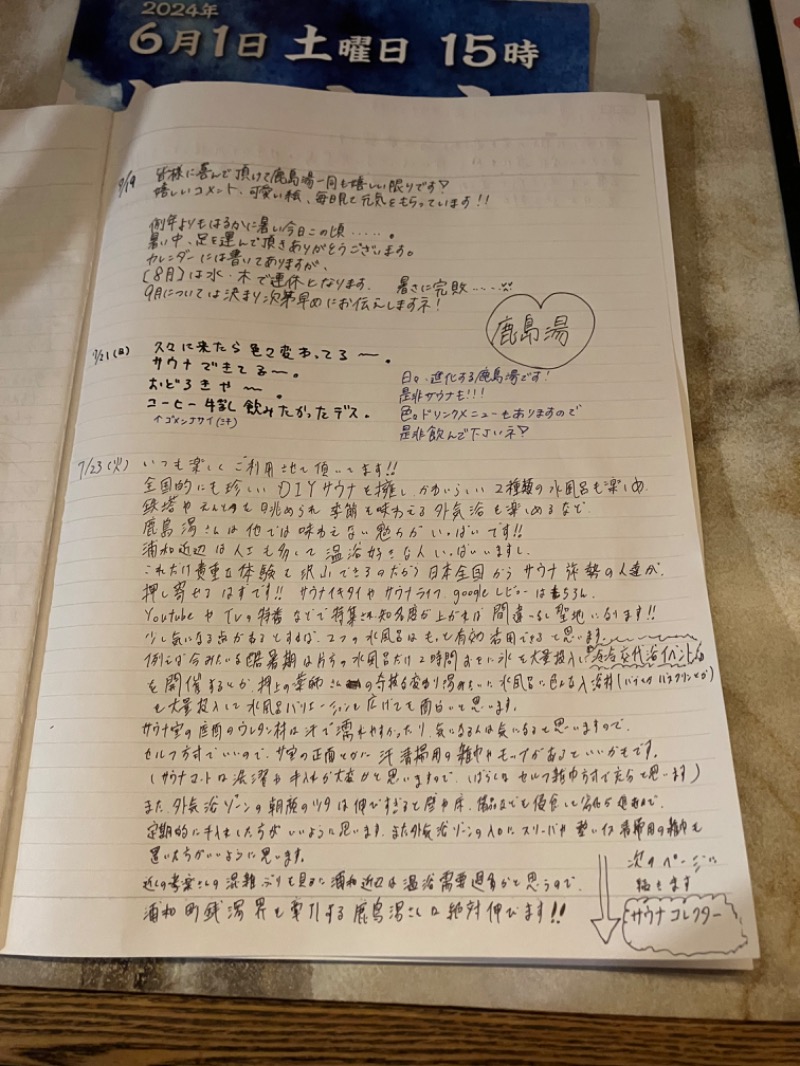 2024年
6月1日 土曜日 15時
7/19 皆様に喜んで頂けて鹿島湯一同も嬉しい限りです?
嬉しいコメント、可愛い絵、毎日見て元気をもらっています!!
例年よりもはるかに暑い今日この頃……。
暑い中、足を運んで頂きありがとうございます。
カレンダーには書いてありますが、
(8月)は水・木で連休となります。 暑さに完敗……
9月については決まり次第早めにお伝えしますネ!
鹿島湯
7/21(日) 久々に来たら色々変わってる〜。
サウナできてる〜。
おどろきや〜。
コーヒー牛乳し飲みたかったデス。
↑ゴメンナサイ
日々、進化する鹿島湯です!
是非サウナも!!!
色々ドリンクメニューもありますので
是非飲んで下さいネ?
7/23(火) いつも楽しくご利用させて頂いてます!!
全国的にも珍しいDIYサウナを擁し、かわいらしい2種類の水風呂も楽しめ
鉄塔やえんとつを眺められ季節も味わえる外気浴も楽しめるなど、
鹿島湯さんは他では味わえない魅力がいっぱいです!!
浦和近辺は人口も多くて温浴好きな人いっぱいいますし、
これだけ貴重な体験も沢山できるのだから日本全国からサウナ強勢の人達が
押し寄せてくるはずです!! サウナイキタイやサウナライフ、googleレビューはもちろん
YoutubeやTVの特番などで特集され知名度が上がれば間違いなし聖地になります!!
少し気になる点があるとすれば、2つの水風呂はもっと有効活用できると思います。
例えば今みたいな酷暑期は片方の水風呂だけ2時間おきに氷を大量投入し冷冷交代浴イベント
を開催するとか、押上の薬師さんの奇抜な変わり湯みたいに水風呂に色んな入浴剤
を大量投入して水風呂バリエーションを広げても面白いと思います。
サウナ室の座面のウレタン材は汗で濡れやすかったり、気になる人は気になると思いますので、
セルフ方式でいいので、サ室の正面とかに汗清掃用の雑巾やモップがあるといいかもです。
(サウナマットは洗濯や手入れが大変かと思いますので、しばらくはセルフ雑巾方式で充分と思います)
また、外気浴ゾーンの朝顔のツタは伸びすぎると壁や床、備品などを侵食して劣化が進むので、
定期的に手入れした方がいいように思います。また外気浴ゾーンの入口にスリーパや 清掃用の雑巾も
置いた方がいいように思います。
近くの 湯さんの混雑ぶりを見ても浦和近辺は温浴需要過多かと思うので、
浦和 町銭湯界を牽引する鹿島湯さんは絶対伸びます!!
次のページに
続きます
サウナコレクター